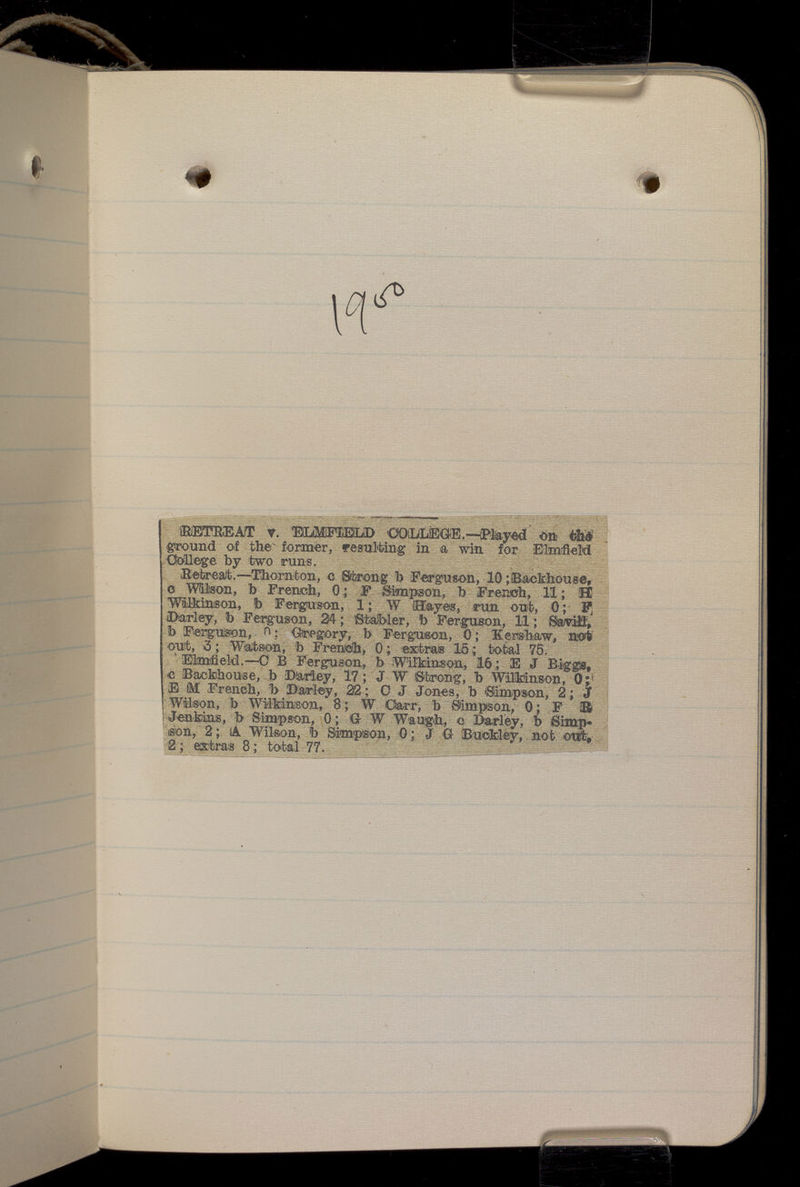 1900
RETREAT v. ELMFIELD COLLEGE.—Played on the
ground of the former, resulting in a win for Elmfield
College by two runs.
Retreat.—Thornton, c Strong b Ferguson, 10; Backhouse,
c Wilson, b French, 0; F Simpson, b French, 11; H
Wilkinson, b Ferguson, 1; W Hayes, run out, 0; F
Darley, b Ferguson, 24; Stabler, b Ferguson, 11; Savill,
b Ferguson, 0; Gregory, b Ferguson, 0; Kershaw, not
out, 3; Watson, b French, 0; extras 15; total 75.
Elmfield.—C B Ferguson, b Wilkinson, 16; E J Biggs,
c Backhouse, b Darley, 17; J W Strong, b Wilkinson, 0;
E M French, b Darley, 22; C J Jones, b Simpson, 2; J
Wilson, b Wilkinson, 8; W Carr, b Simpson, 0; F B
Jenkins, b Simpson, 0; G W Waugh, c Darley, b Simp-
son, 2; A Wilson, b Simpson, 0; J G Buckley, not out,
2; extras 8; total 77.